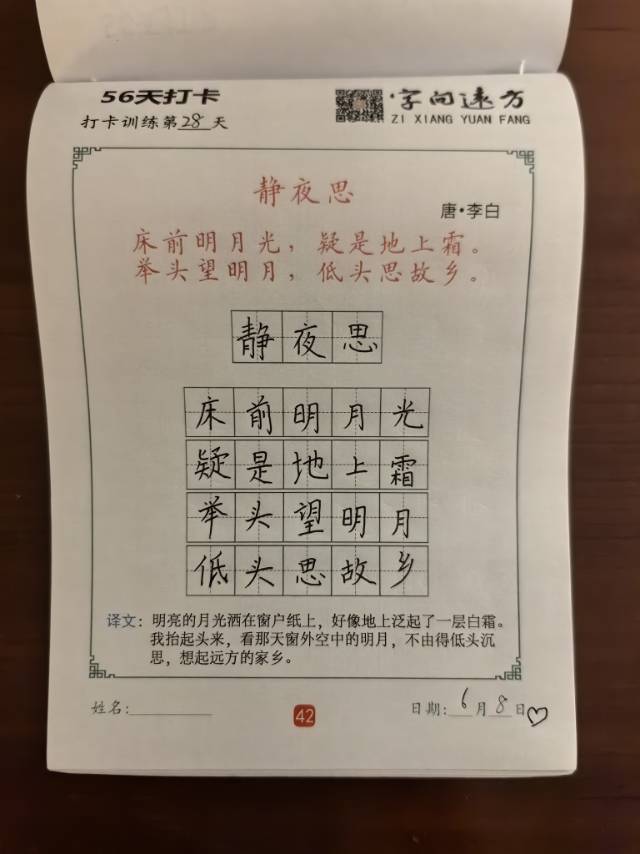 56天打卡
打卡训练第28天
字向远方
ZI XIANG YUAN FANG
静夜思
唐·李白
床前明月光，疑是地上霜。
举头望明月，低头思故乡。
静夜思
床前明月光
疑是地上霜
举头望明月
低头思故乡
译文：明亮的月光洒在窗户纸上，好像地上泛起了一层白霜。
我抬起头来，看那天窗外空中的明月，不由得低头沉
思，想起远方的家乡。
姓名：
42
日期：6月8日